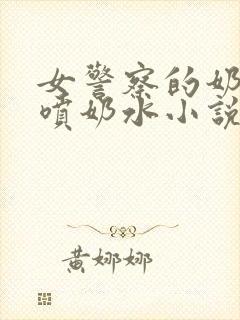 女警察的奶
噴奶水小說
黃娜娜